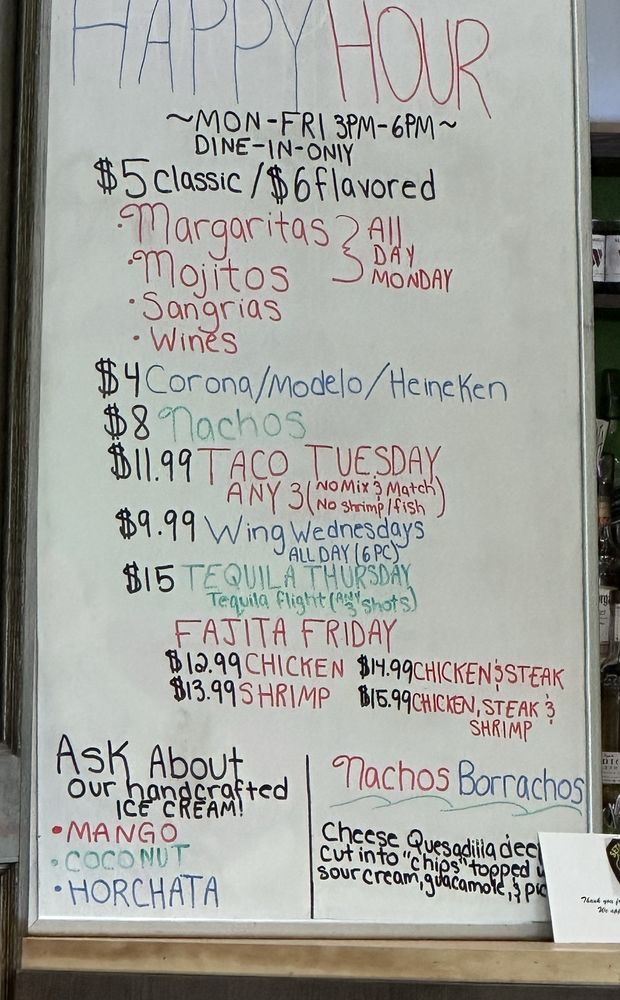 HAPPY HOUR
~MON-FRI 3PM-6PM~
DINE-IN-ONLY
$5 classic / $6 flavored
• Margaritas
• Mojitos
All
DAY
MONDAY
• Sangrias
• Wines
$4 Corona/Modelo/Heineken
$8 Nachos
$11.99 TACO TUESDAY
ANY 3 (No Mix & Match
No shrimp/fish)
$9.99 Wing Wednesdays
ALL DAY (6 PC)
$15 TEQUILA THURSDAY
Tequila flight (ANY 3 shots)
FAJITA FRIDAY
$12.99 CHICKEN $14.99 CHICKEN & STEAK
$13.99 SHRIMP $15.99 CHICKEN, STEAK &
SHRIMP
ASK About
our handcrafted
ICE CREAM!
• MANGO
• COCONUT
• HORCHATA
Nachos Borrachos
Cheese Quesadilla
cut into "chips" topped
sour cream, guacamole, &
Thank you
We